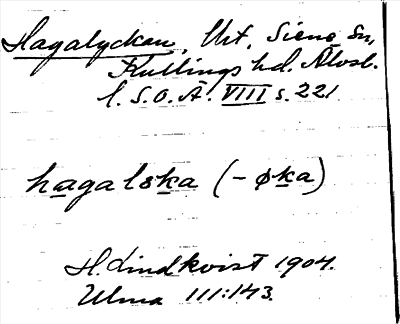 Hagalyckan, Urt, Siene Sn,
Kullings hd. Älvsb.
l. S.O.Ä. VIII s. 221
hagalska (-øka)
H. Lindkvist 1904.
Ulma 111:143.